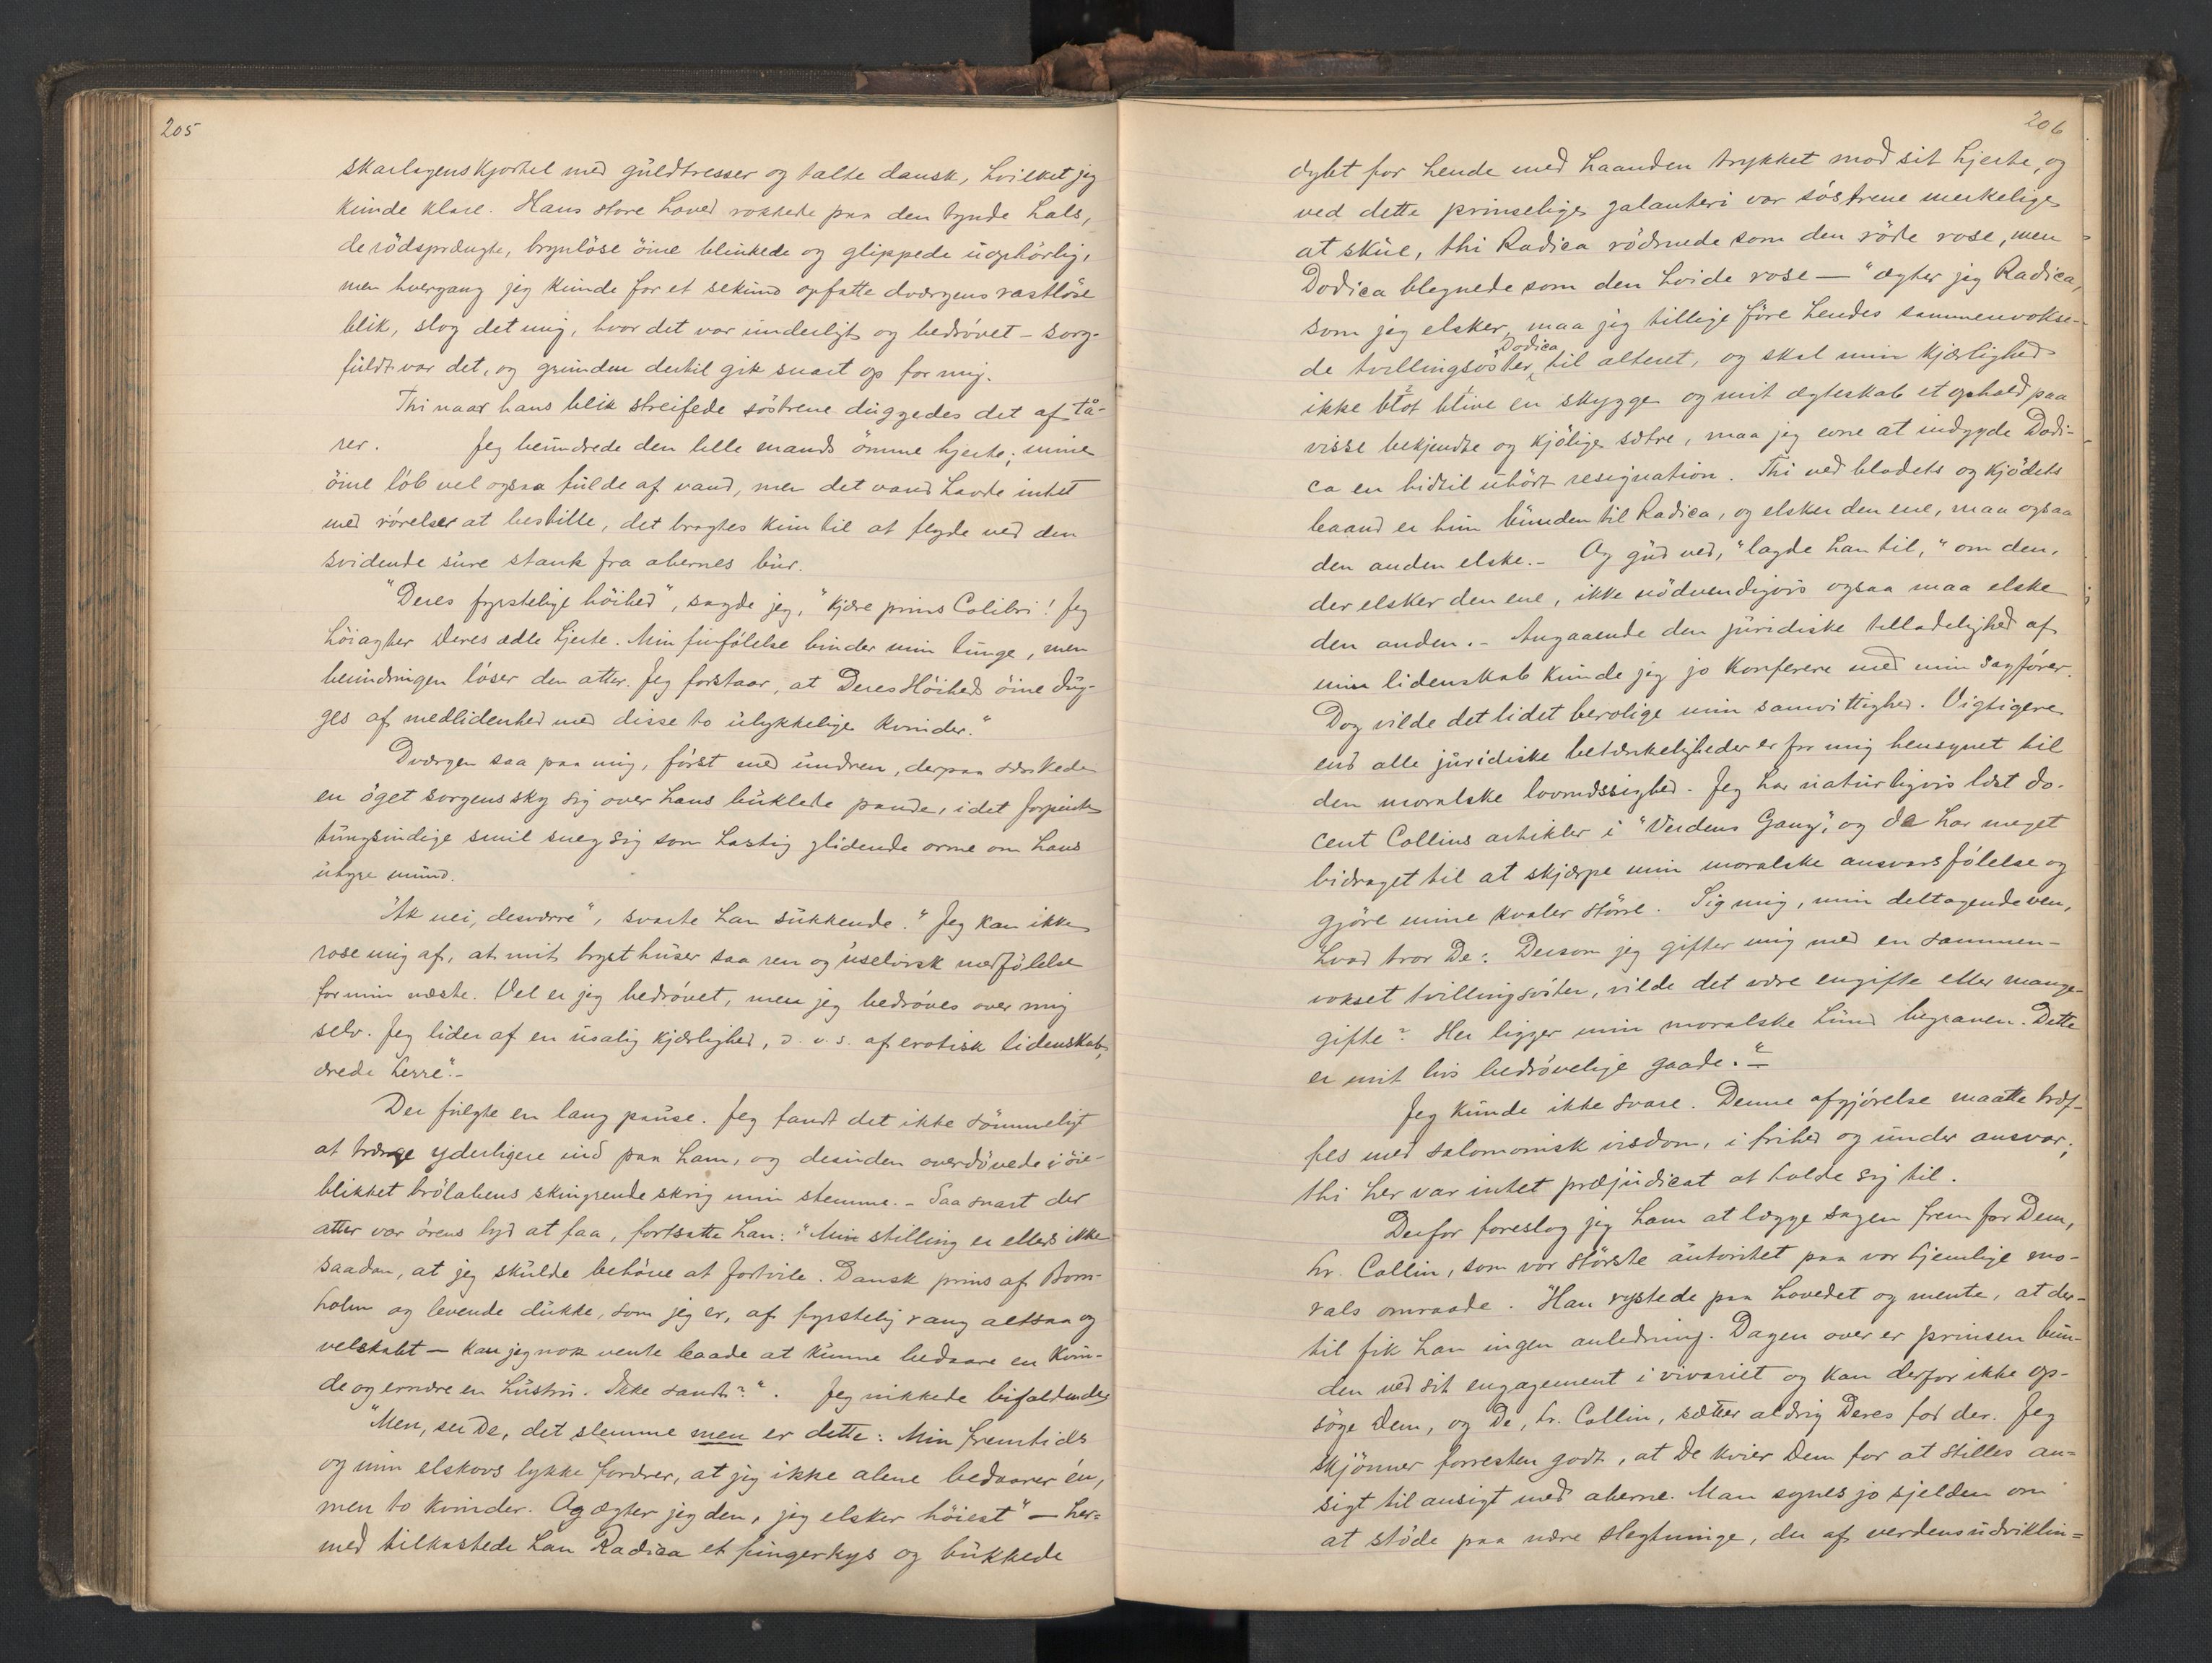 205
skarlagenskjortel med guldtresser og talte dansk, hvilket jeg
kunde klare. Hans store hoved rokkede paa den tynde hals,
de rödsprængte, brynlöse öine blinkede og glippede uophörlig,
men hvergang jeg kunde for et sekund opfatte dværgens rastlöse
blik, slog det mig, hvor det var underligt og bedrövet – sorg-
fuldt var det, og grunden dertil gik snart op for mig.
Thi naar hans blik streifede söstrene duggedes det af tå-
rer. Jeg beundrede den lille mands ömme hjerte; mine
öine löb vel ogsaa fulde af vand, men det vand havde intet
med rörelser at bestille, det bragtes kun til at flyde ved den
svidende sure stank fra abernes bur.
"Deres fyrstelige höihed", sagde jeg, "kjære prins Colibri! Jeg
höiagter Deres ædle hjerte. Min finfölelse binder min tunge, men
beundringen löser den atter. Jeg forstaar, at Deres Höiheds öine dug-
ges af medlidenhed med disse to ulykkelige kvinder."
Dværgen saa paa mig, först med undren, derpaa sænkede
en öget sorgens sky sig over hans buklede pande, idet forpinte
tungsindige smil sneg sig som hastig glidende orme om hans
uhyre mund.
"Ak nei, desværre", svarte han sukkende. "Jeg kan ikke
rose mig af, at mit bryst huser saa ren og uselvisk medfölelse
for min næste. Vel er jeg bedrövet, men jeg bedröves over mig
selv. Jeg lider af en usalig kjærlighed, d. v. s. af erotisk lidenskab,
ærede herre".–
Der fulgte en lang pause. Jeg fandt det ikke sömmeligt
at trænge yderligere ind paa ham, og desuden overdövede i öie-
blikket brölabens skingrende skrig min stemme. – Saa snart der
atter var örens lyd at faa, fortsatte han: "Min stilling er ellers ikke
saadan, at jeg skulde behöve at fortvile. Dansk prins af Born-
holm og levende dukke, som jeg er, af fyrstelig rang altsaa og
velskabt – kan jeg nok vente baade at kunne bedaare en kvin-
de og ernære en hustru. Ikke sandt?". Jeg nikkede bifaldende
"Men, ser De, det slemme men er dette: Min fremtids
og min elskovs lykke fordrer, at jeg ikke alene bedaarer én,
men to kvinder. Og ægter jeg den, jeg elsker höiest" – her-
med tilkastede han Radica et fingerkys og bukkede
206
dybt for hende med haanden trykket mod sit hjerte, og
ved dette prinselige galanteri var söstrene merkelige
at skue, thi Radica rödmede som den röde rose, men
Dodica blegnede som den hvide rose – "ægter jeg Radica,
som jeg elsker, maa jeg tillige före hendes sammenvokse-
de tvillingsöster Dodica til alteret, og skal min kjærlighed
ikke blot blive en skygge og mit ægteskab et ophold paa
visse bekjendte og kjölige sætre, maa jeg evne at indgyde Dodi-
ca en hidtil uhört resignation. Thi ved blodets og kjödets
baand er hun bunden til Radica, og elsker den ene, maa ogsaa
den anden elske. – Og gud ved, "lagde han til, "om den,
der elsker den ene, ikke nödvendigvis ogsaa maa elske
den anden. – Angaaende den juridiske tilladelighed af
min lidenskab kunde jeg jo konferere med min sagförer.
Dog vilde det lidet berolige min samvittighed. Vigtigere
end alle juridiske betænkeligheder er for mig hensynet til
den moralske lovmæssighed. Jeg har naturligvis læst do-
cent Collins artikler i "Verdens Gang", og de har meget
bidraget til at skjærpe min moralske ansvarsfölelse og
gjöre mine kvaler större. Sig mig, min deltagende ven,
hvad tror De: Dersom jeg gifter mig med en sammen-
vokset tvillingsöster, vilde det være engifte eller mange-
gifte? Her ligger min moralske hund begraven. Dette
er mit livs bedrövelige gaade." –
Jeg kunde ikke svare. Denne afgjörelse maatte træf-
fes med salomonisk visdom, i frihed og under ansvar;
thi her var intet præjudicat at holde sig til.
Derfor foreslog jeg ham at lægge sagen frem for Dem,
hr. Collin, som vor störste autoritet paa vor hjemlige mo-
rals omraade. Han rystede paa hovedet og mente, at der-
til fik han ingen anledning. Dagen over er prinsen bun-
den ved sit engagement i vivariet og kan derfor ikke op-
söge Dem, og De, hr. Collin, sætter aldrig Deres fod der. Jeg
skjönner forresten godt, at De kvier Dem for at stilles an-
sigt til ansigt med aberne. Man synes jo sjelden om
at stöde paa nære slegtninge, der af verdensudviklin-